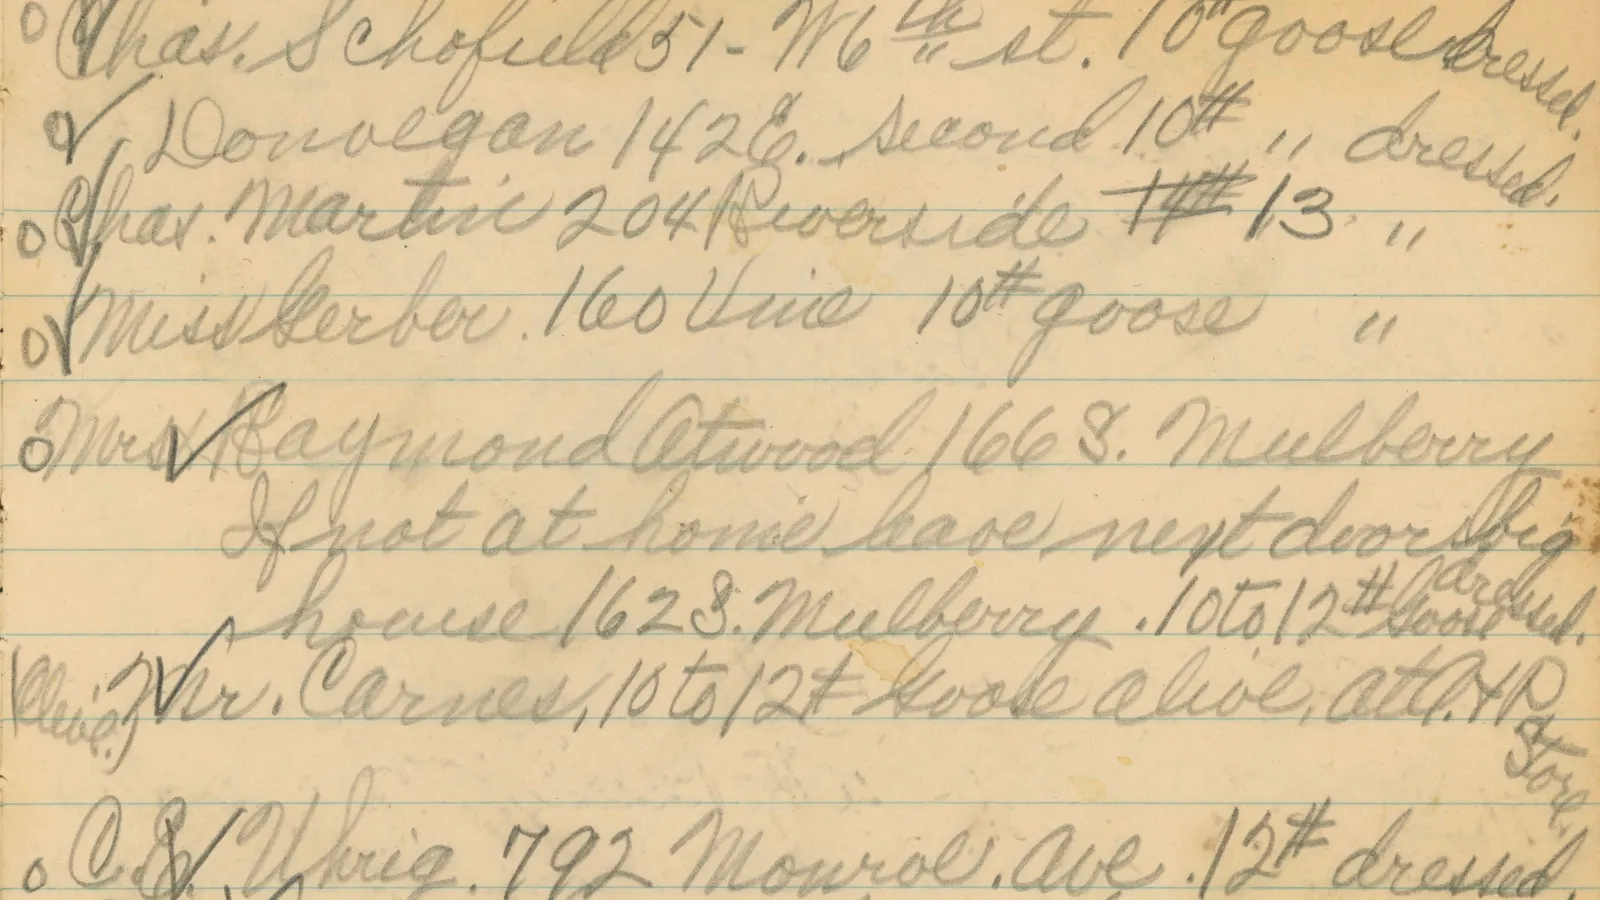 o Chas. Schofield 51 - W 6th st. 10# goose dressed.
o ✓ Donvegan 142 E. second 10# " dressed.
o Chas. Martin 204 Riverside 14# 13 "
o ✓ Miss Gerber. 160 Vine 10# goose "
o Mrs ✓ Raymond Atwood 166 S. Mulberry
If not at home leave next door big
house 162 S. Mulberry. 10 to 12# Goose dressed.
(Alive.) ✓ Mr. Carnes, 10 to 12# Goose alive, at A. & P. Store.
o C. ✓ Uhrig. 792 Monroe. Ave. 12# dressed.